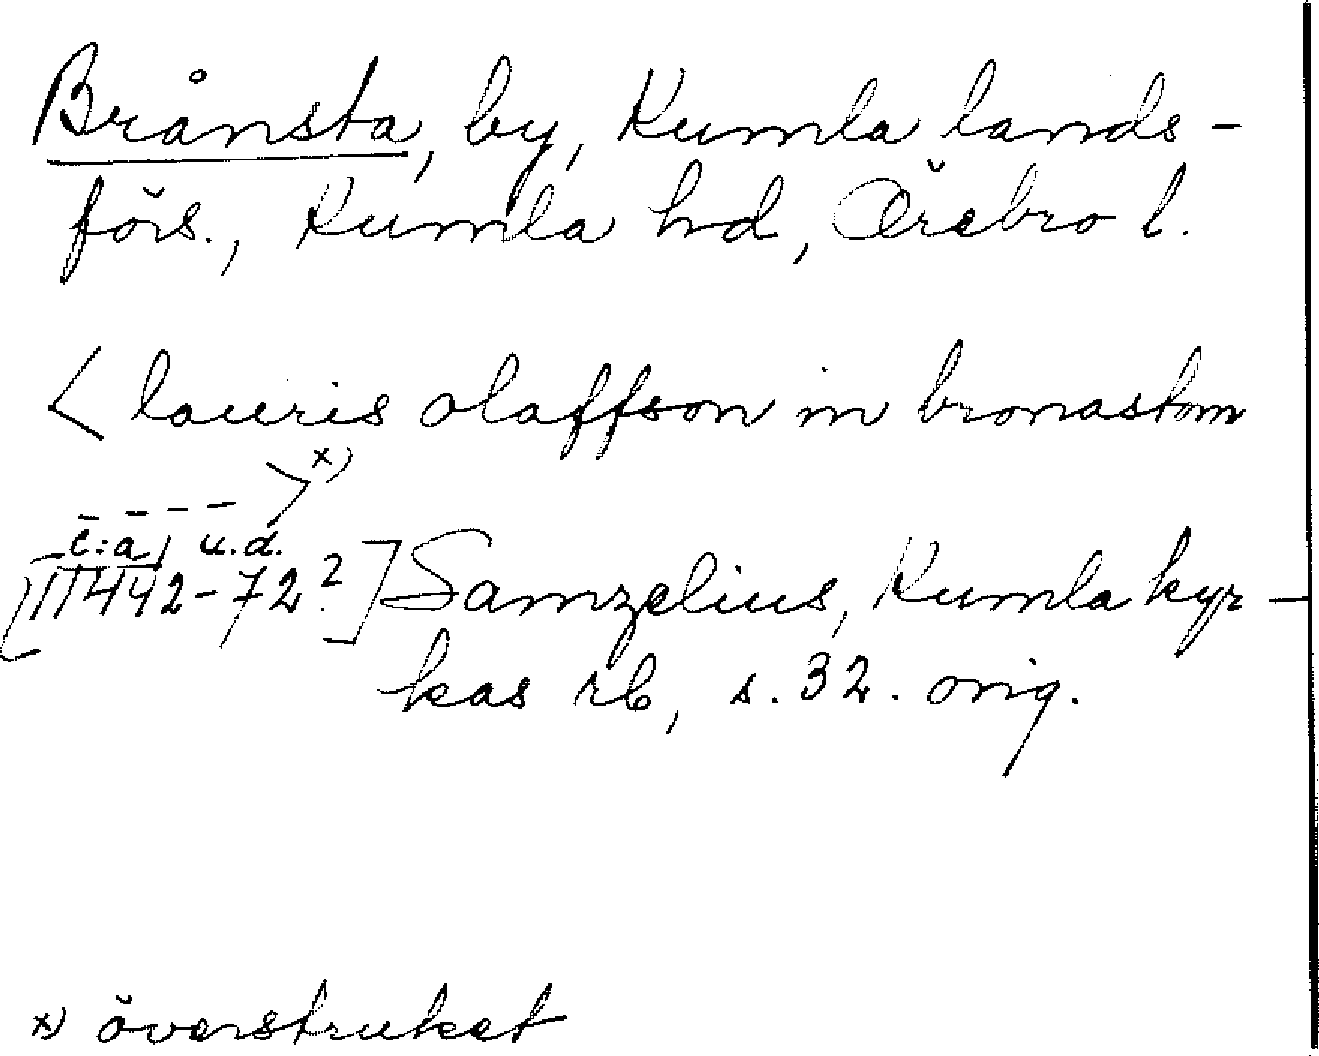 Brånsta, by, Kumla lands-
förs., Kumla hd, Örebro l.
< lauris olaffson in bronastom
- - - - > x)
c:a) u.d.
[1442-72?] Samzelius, Kumla kyr-
kas rb, s. 32. orig.
x) överstruket